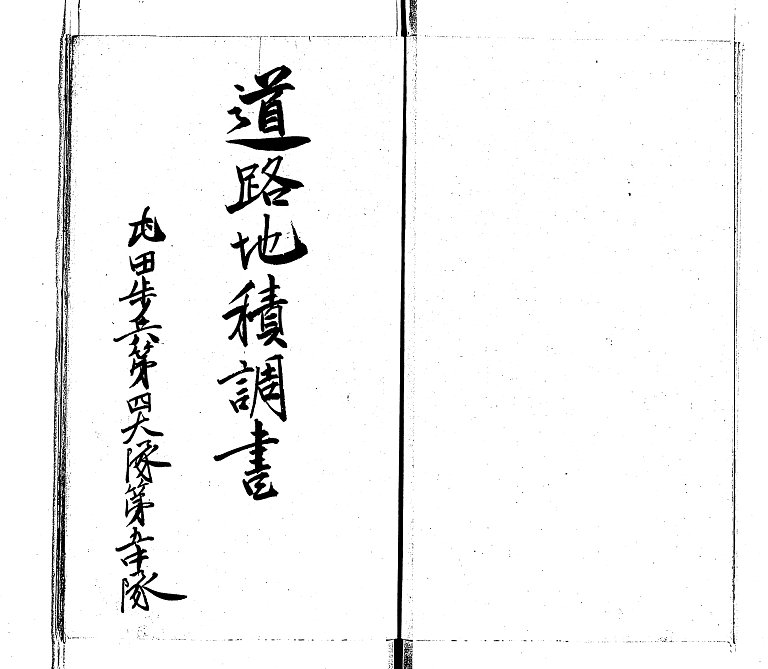 道路地積調書
屯田歩兵第四大隊第五中隊